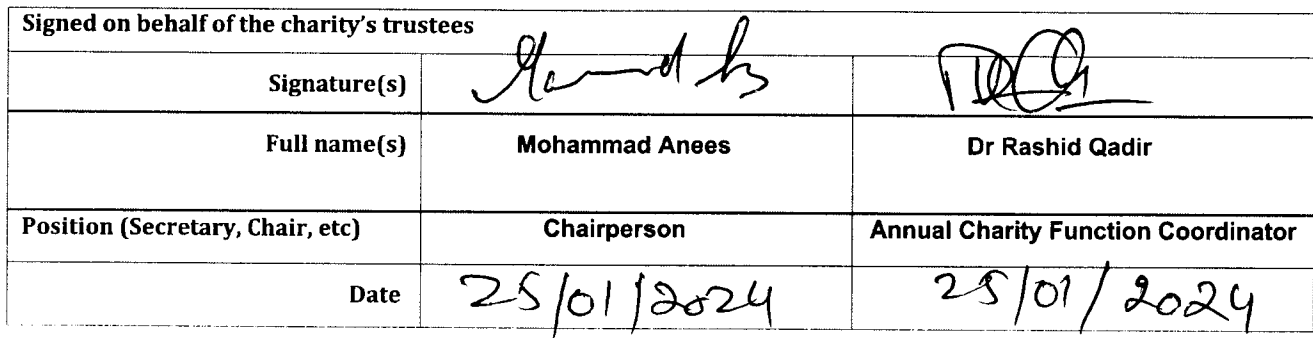 Signed on behalf of the charity's trustees
Signature(s)
Full name(s) Mohammad Anees Dr Rashid Qadir
Position (Secretary, Chair, etc) Chairperson Annual Charity Function Coordinator
Date 25/01/2024 25/01/2024